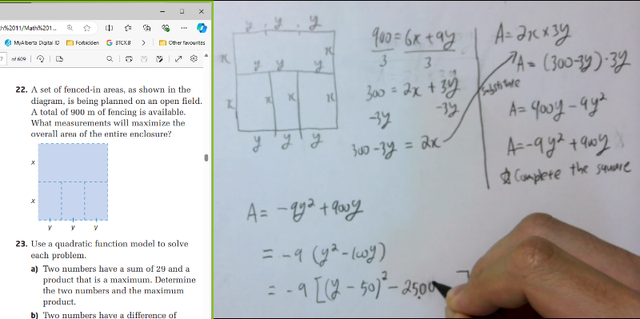 22. A set of fenced-in areas, as shown in the
diagram, is being planned on an open field.
A total of 900 m of fencing is available.
What measurements will maximize the
overall area of the entire enclosure?
x
x
y y y
23. Use a quadratic function model to solve
each problem.
a) Two numbers have a sum of 29 and a
product that is a maximum. Determine
the two numbers and the maximum
product.
b) Two numbers have a difference of
MyAlberta Digital ID
Forbidden
GTCX8
Other favourites
of 609
y . y . y
x x
y y y
x x x x
y y y
900 = 6x + 9y
3 3
300 = 2x + 3y
-3y -3y
300 - 3y = 2x
Substitute
A = 2x × 3y
A = (300-3y) · 3y
A = 900y - 9y²
A = -9y² + 900y
Complete the square
A = -9y² + 900y
= -9 (y² - 100y)
= -9 [(y - 50)² - 2500